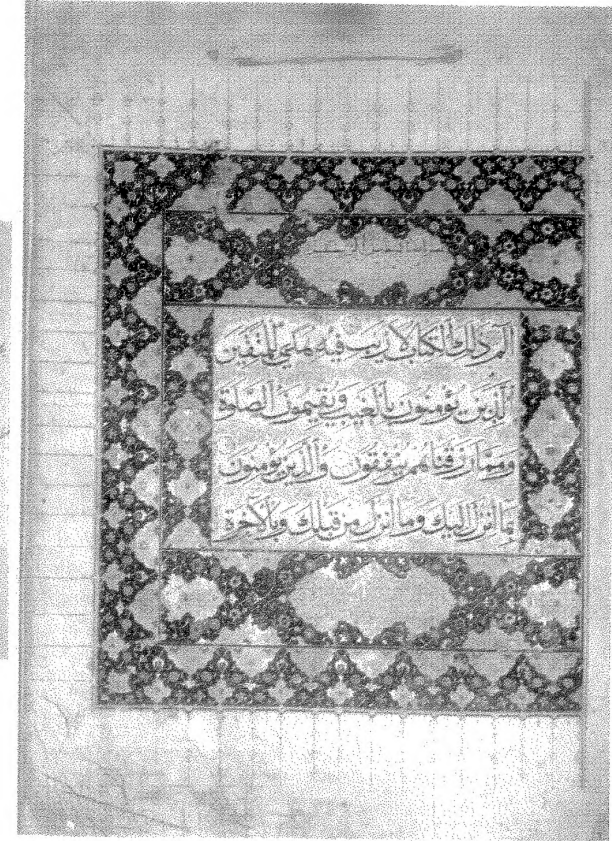 الم ذلك الكتاب لا ريب فيه هدى للمتقين
الذين يؤمنون بالغيب ويقيمون الصلاة
ومما رزقناهم ينفقون والذين يؤمنون
بما أنزل إليك وما أنزل من قبلك وبالآخرة